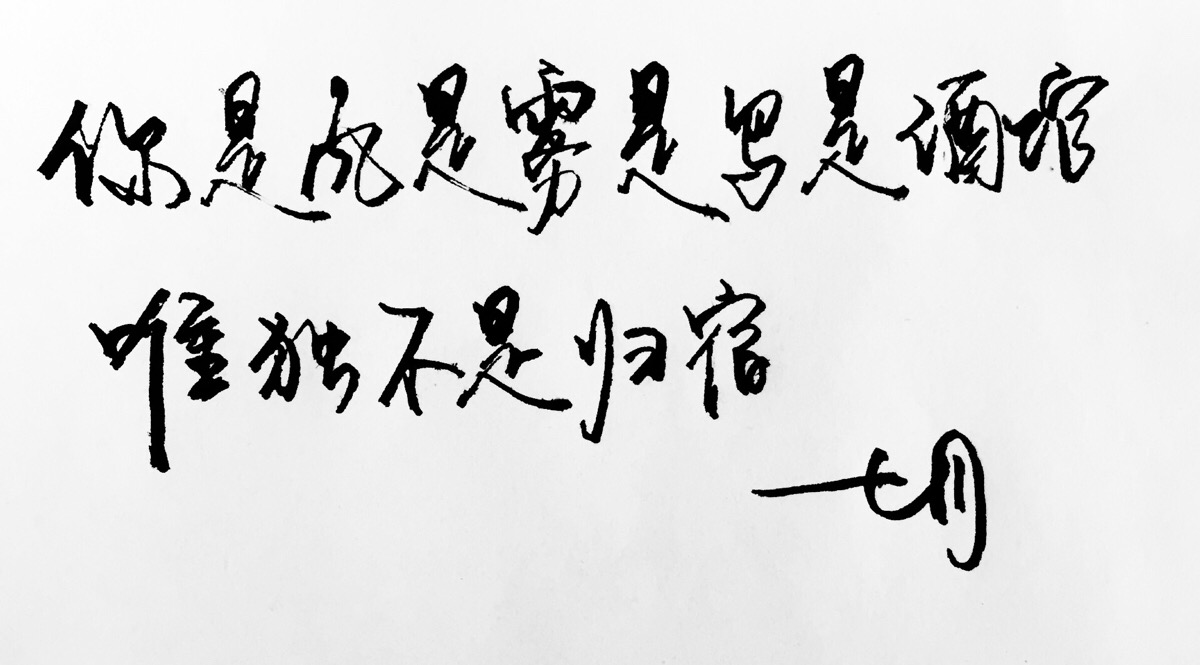 你是风是雾是鸟是酒馆
唯独不是归宿
七月